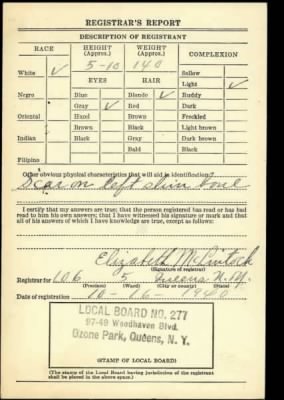 REGISTRAR'S REPORT
DESCRIPTION OF REGISTRANT
RACE HEIGHT (Approx.) WEIGHT (Approx.) COMPLEXION
5-10 140
White ✓ EYES HAIR Sallow
Light ✓
Negro Blue Blonde ✓ Ruddy
Gray ✓ Red Dark
Oriental Hazel Brown Freckled
Brown Gray Light brown
Indian Black Black Dark brown
Bald Black
Filipino
Other obvious physical characteristics that will aid in identification
Scar on left shin bone
I certify that my answers are true; that the person registered has read or has had
read to him his own answers; that I have witnessed his signature or mark and that
all of his answers of which I have knowledge are true, except as follows:
Elizabeth McIntosh
(Signature of registrar)
Registrar for 106 5 Queens N.Y.
(Precinct) (Ward) (City or county) (State)
Date of registration 10-16-1940
LOCAL BOARD NO. 277
97-49 Woodhaven Blvd.
Ozone Park, Queens, N. Y.
(STAMP OF LOCAL BOARD)
(The stamp of the Local Board having jurisdiction of the registrant
shall be placed in the above space.)